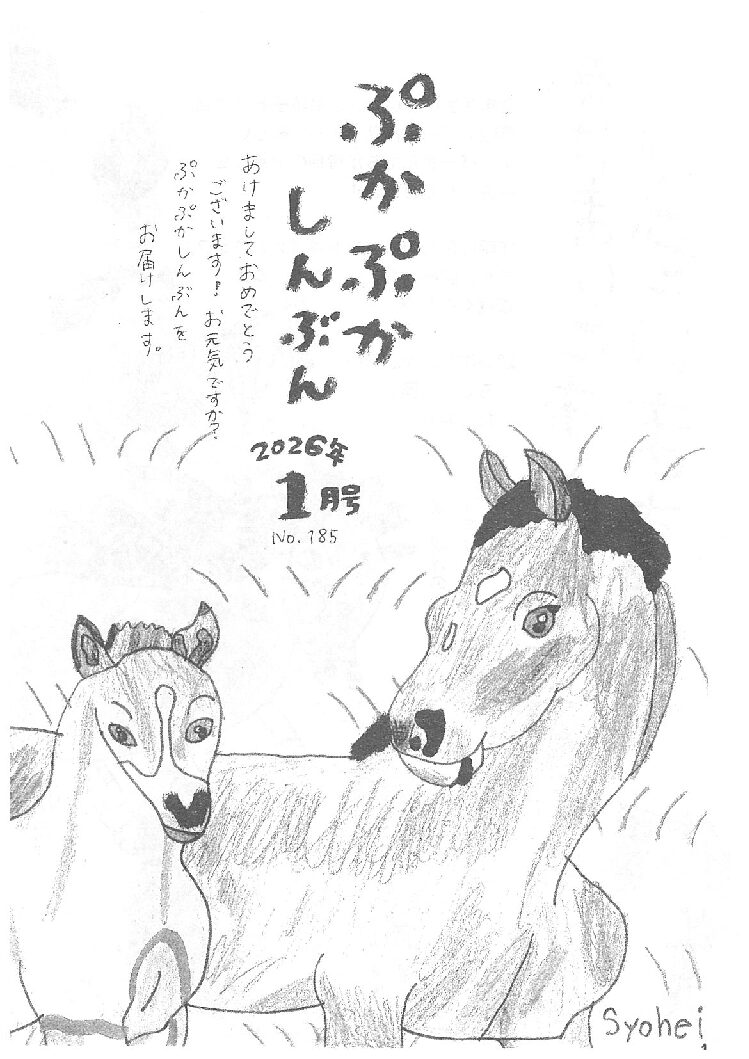 ぷかぷか
しんぶん
2026年
1月号
No. 185
あけましておめでとう
ございます！ お元気ですか？
ぷかぷかしんぶんを
お届けします。
Syohei
1